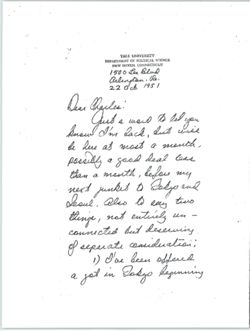 YALE UNIVERSITY
DEPARTMENT OF POLITICAL SCIENCE
NEW HAVEN, CONNECTICUT
1530 Lee Blvd
Arlington, Va.
22 Oct 1951
Dear Charles:
Just a word to let you
know I'm back, but will
be here at most a month,
possibly a good deal less
than a month, before my
next junket to Tokyo and
Seoul. Also to say two
things, not entirely un-
connected but deserving
of separate consideration:
1) I've been offered
a job in Tokyo beginning